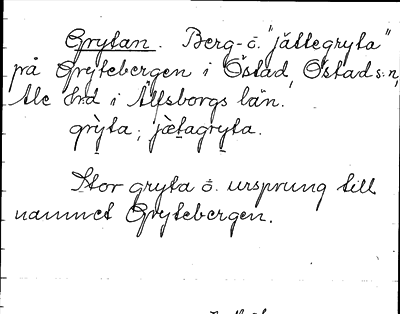 Grytan. Berg- o. "jättegryta"
på Grytebergen i Östad, Östads sn,
Ale hd i Älfsborgs län.
grỳta; jæ̀tagryta.
Stor gryta o. ursprung till
namnet Grytebergen.